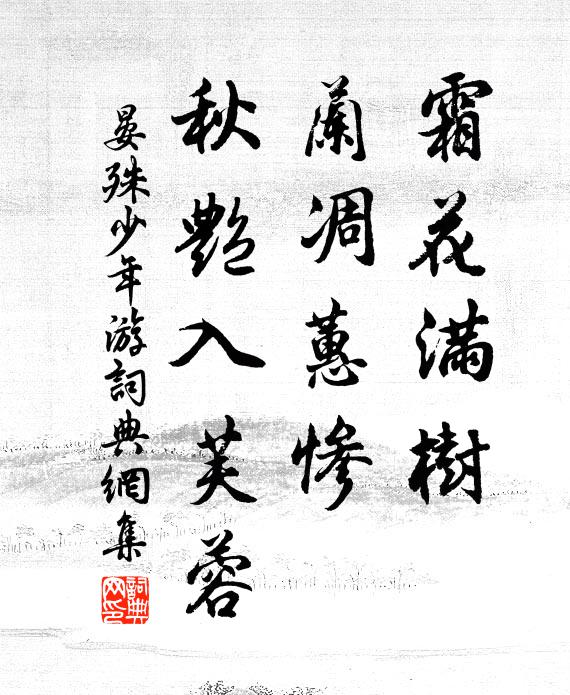 霜花滿樹
蘭凋蕙慘
秋艷入芙蓉
晏殊少年游詞典網集
詞典网印